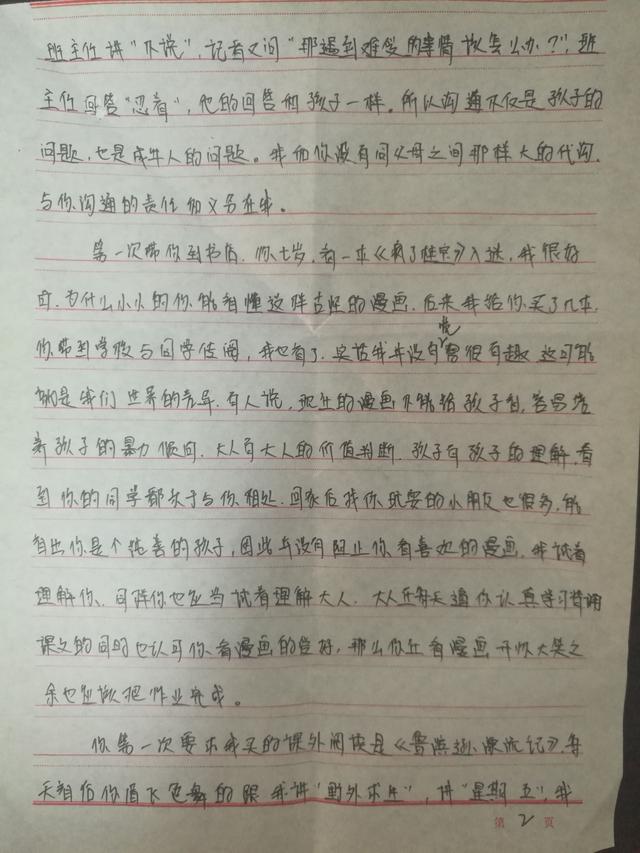 班主任讲“不说”，记者又问“那遇到难受的事情该怎么办？”，班
主任回答“忍着”，他的回答和孩子一样。所以沟通不仅是孩子的
问题，也是成年人的问题。我和你没有同父母之间那样大的代沟，
与你沟通的责任和义务在我。
第一次带你到书店，你七岁，看一本《 》入迷，我很好
奇，为什么小小的你能看懂这样古怪的漫画，后来我给你买了几本，
你带到学校与同学传阅，我也看了，实话我并没有觉得很有趣，这可能
就是我们世界的差异。有人说，现在的漫画不能给孩子看，容易培
养孩子的暴力倾向，大人有大人的价值判断，孩子有孩子的理解，看
到你的同学都乐于与你相处，回家后找你玩耍的小朋友也很多，能
看出你是个纯善的孩子，因此并没有阻止你看喜欢的漫画，我试着
理解你，同样你也应当试着理解大人，大人在每天逼你认真学习背诵
课文的同时也认可你看漫画的爱好，那么你在看漫画开怀大笑之
余也应该把作业完成。
你第一次要求我买的课外阅读是《鲁滨逊漂流记》，每
天看后你眉飞色舞的跟我讲“野外求生”，讲“星期五”，我
第2页